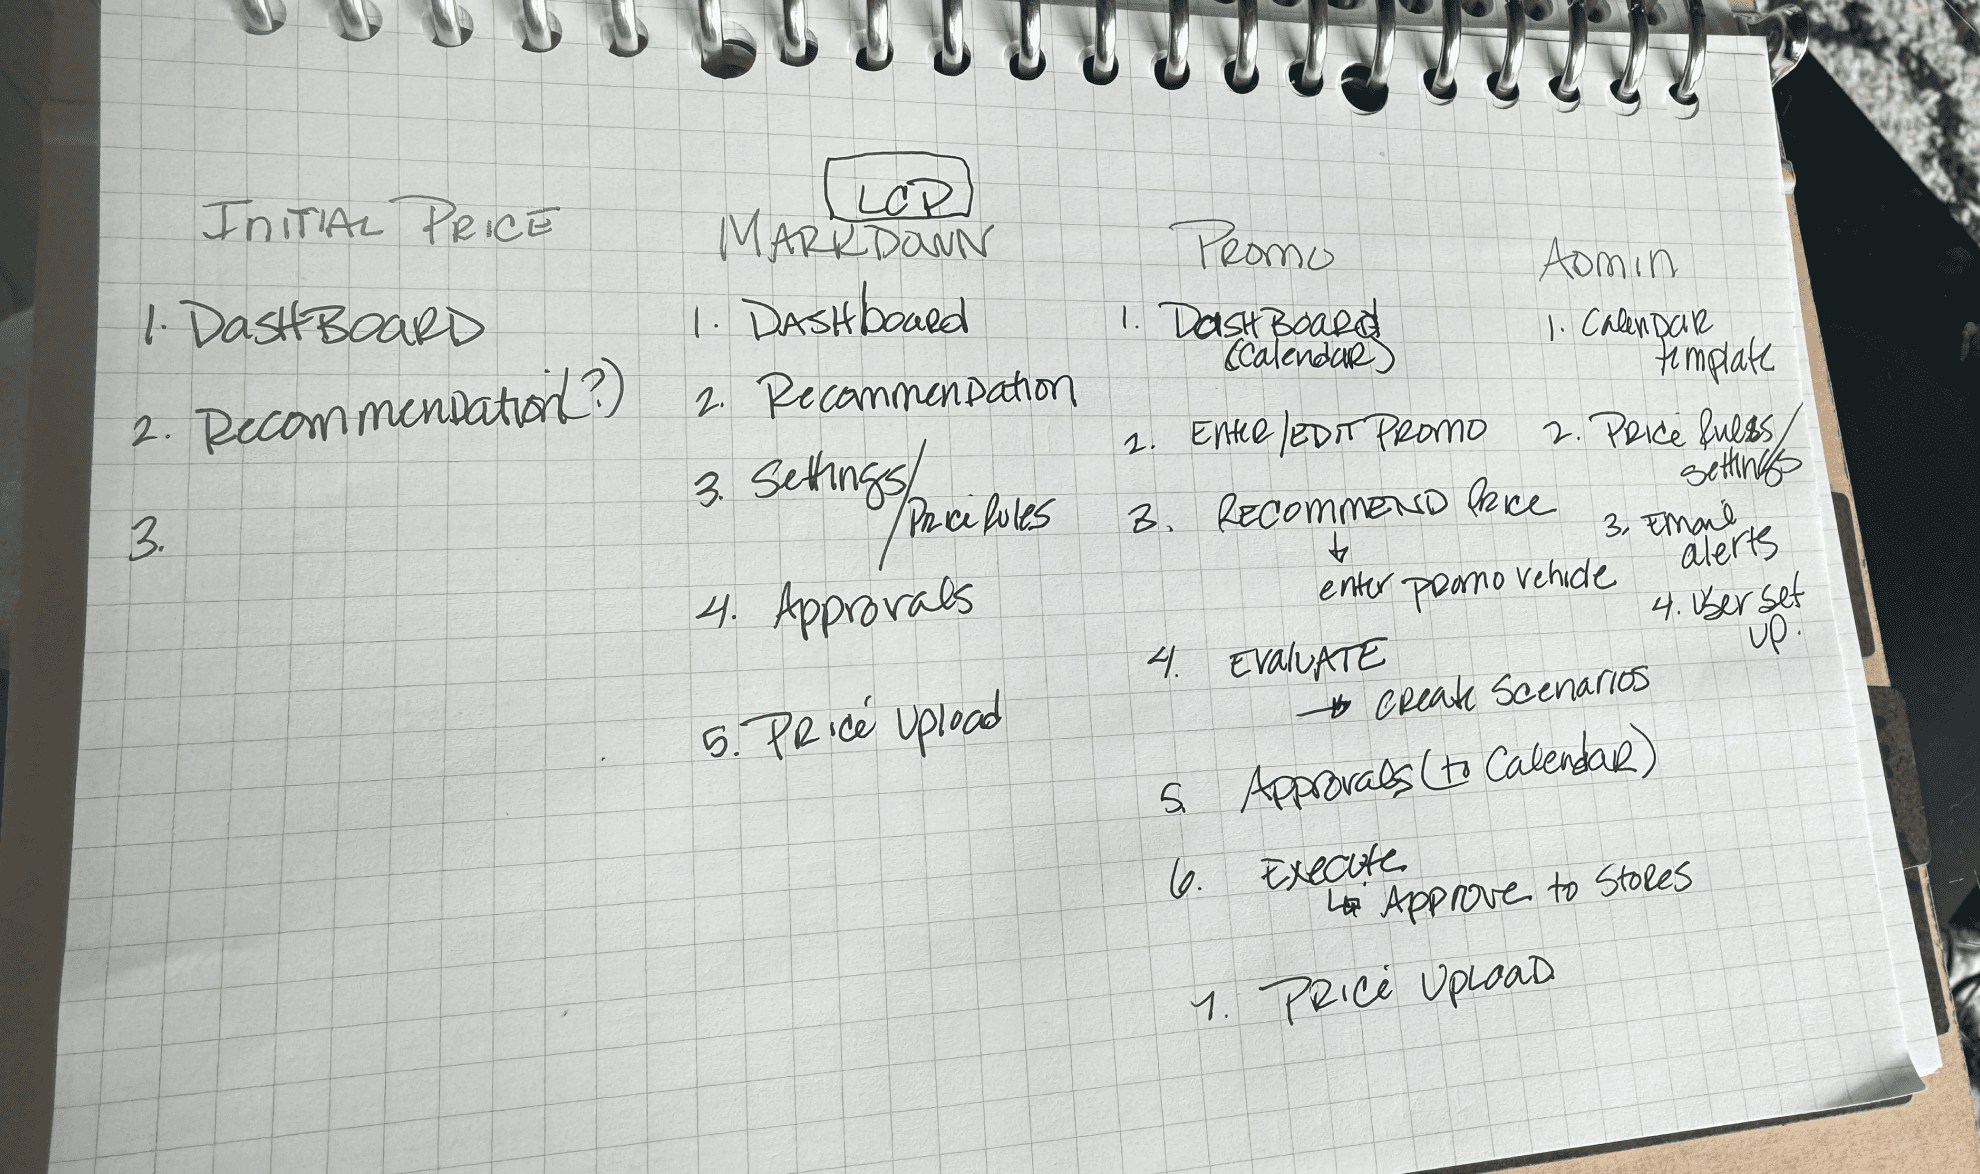 LCP
INITIAL PRICE
1. DASHBOARD
2. Recommendation(?)
3.
MARKDOWN
1. DASHboard
2. Recommendation
3. Settings/
Price Rules
4. Approvals
5. Price Upload
Promo
1. DashBoard
(Calendar)
2. Enter/EDIT PROMO
3. RECOMMEND Price
↓
enter promo vehicle
4. EvaluATE
→ Create Scenarios
5. Approvals (to Calendar)
6. Execute
↳ Approve to Stores
7. PRICE Upload
Admin
1. Calendar
template
2. Price Rules/
settings
3. Email
alerts
4. User set
up.